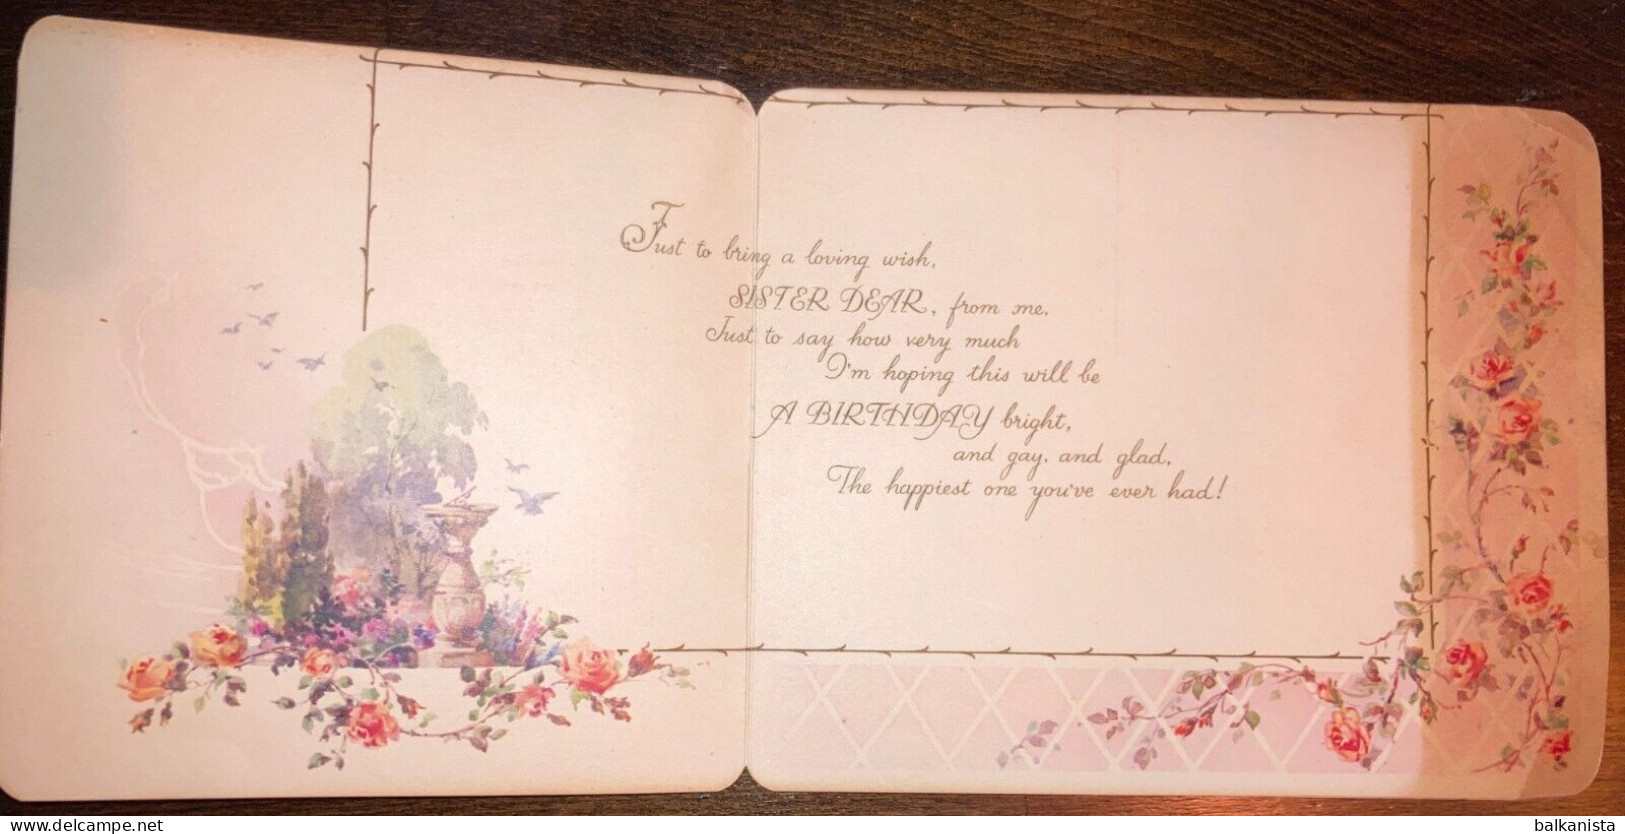 Just to bring a loving wish,
SISTER DEAR, from me,
Just to say how very much
I'm hoping this will be
A BIRTHDAY bright,
and gay, and glad,
The happiest one you've ever had!
www.delcampe.net
balkanista